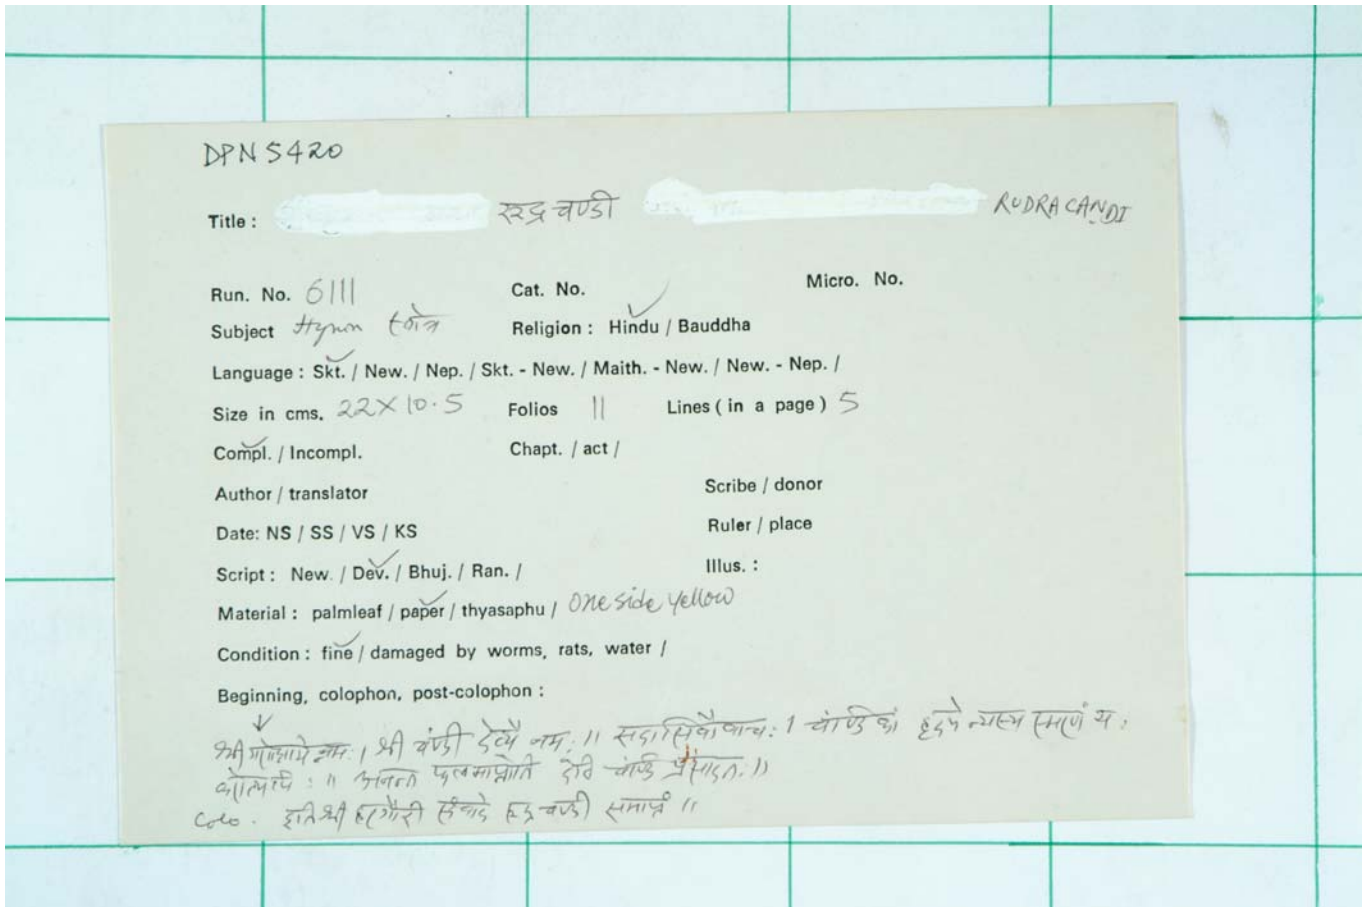 DPN 5420
Title : रुद्र चण्डी RUDRA CANDI
Run. No. 6111 Cat. No. Micro. No.
Subject Hymn स्तोत्र Religion : Hindu / Bauddha
Language : Skt. / New. / Nep. / Skt. - New. / Maith. - New. / New. - Nep. /
Size in cms. 22 X 10.5 Folios 11 Lines ( in a page ) 5
Compl. / Incompl. Chapt. / act /
Author / translator Scribe / donor
Date: NS / SS / VS / KS Ruler / place
Script : New. / Dev. / Bhuj. / Ran. / Illus. :
Material : palmleaf / paper / thyasaphu / One side yellow
Condition : fine / damaged by worms, rats, water /
Beginning, colophon, post-colophon :
श्री गणेशाय नमः । श्री चंण्डी देव्यै नमः ॥ चण्डिकां हृदये न्यस्य स्मरणं यः
फलमाप्नोति देवि चण्डि प्रसादतः ॥
Colo. इति श्री हरगौरी संवादे रुद्र चण्डी समाप्तं ॥